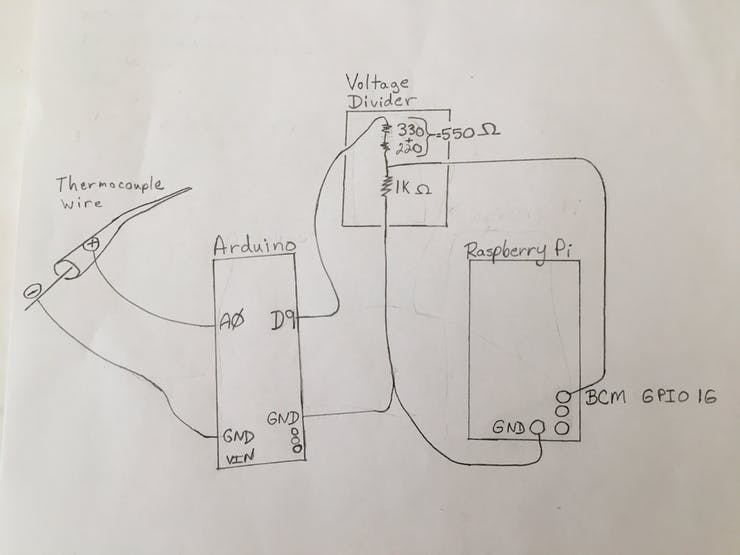 Voltage
Divider
330
+
220
=550 Ω
1K Ω
Thermocouple
wire
+
-
Arduino
AØ
D9
GND
GND
VIN
Raspberry Pi
BCM GPIO 16
GND